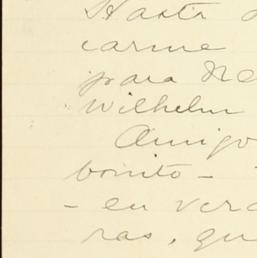 Hasta
carme
para
Wilhelm
Amigo
bonito -
- eu ver
ras, qu